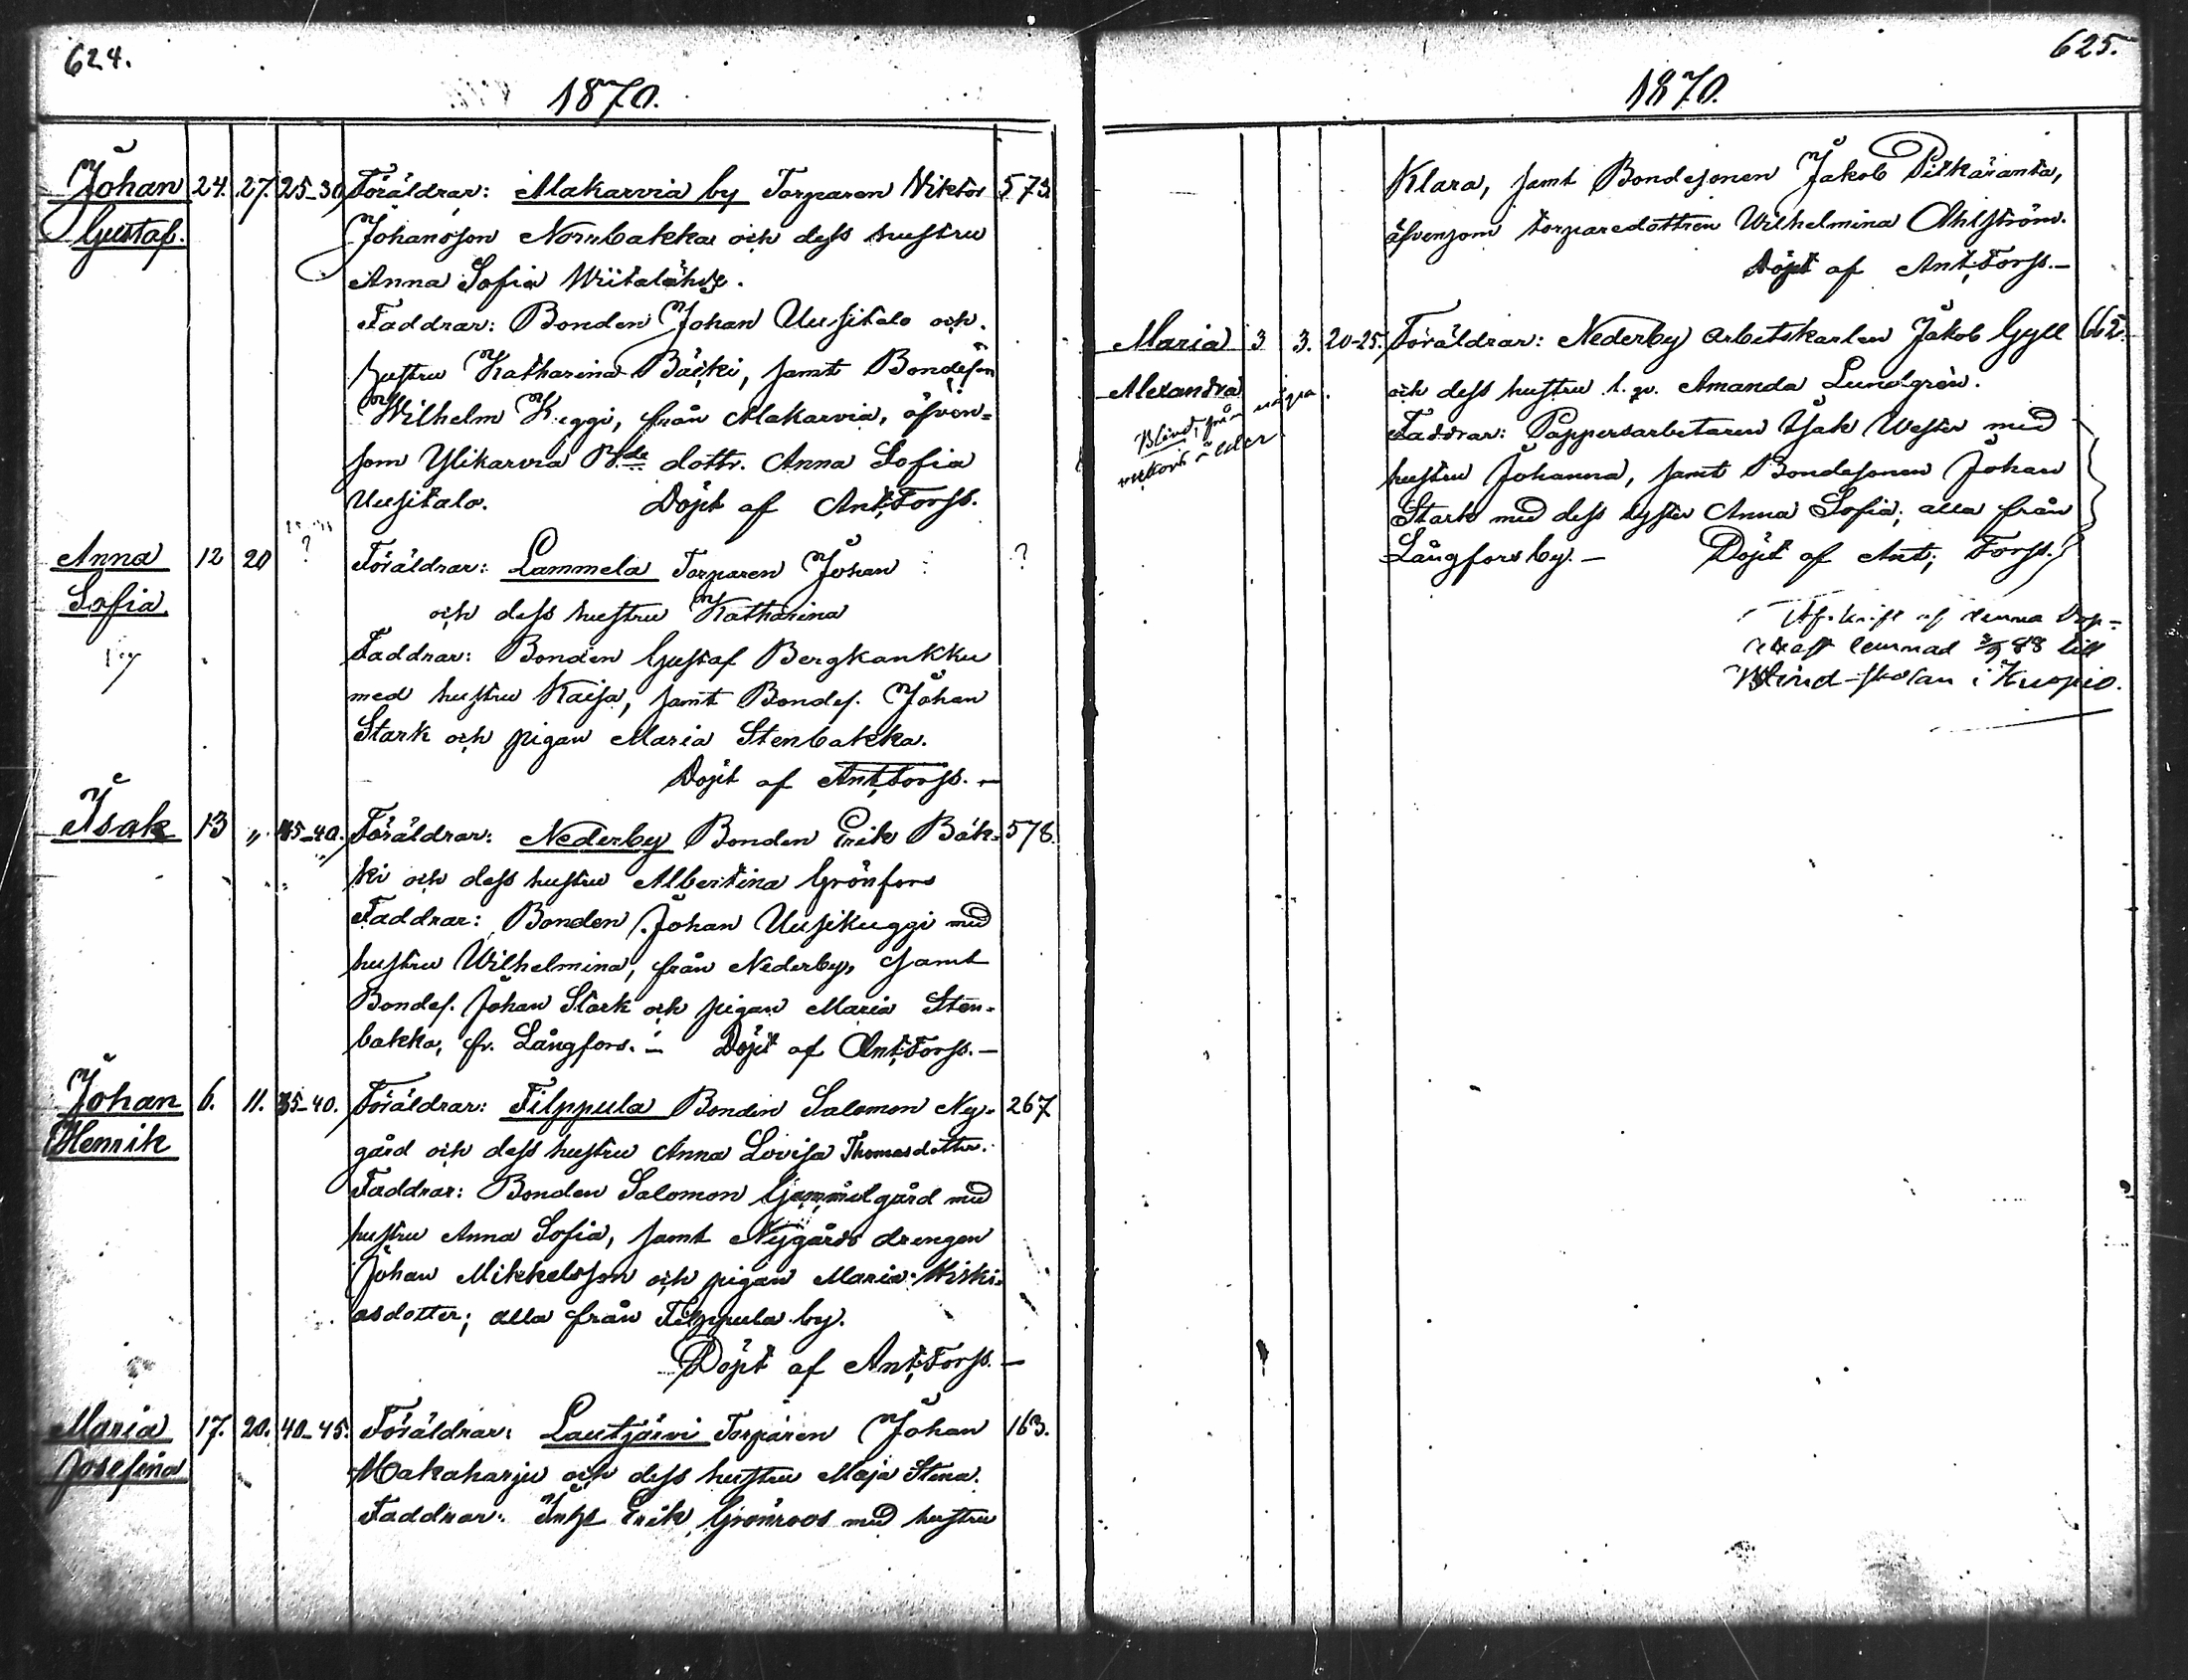 624.
1870.
Johan 24. 27. 25-30. Föräldrar: Makarvia by Torparen Viktor 573
Gustaf. Johansson Norrbakka och dess hustru
Anna Sofia Wiitalähde.
Faddrar: Bonden Johan Uusitalo och
hustru Katharina Bäcki, samt Bondeson
Wilhelm Keggi, från Makarvia, äfven=
som Ylikarvia B.de dottr. Anna Sofia
Uusitalo. Döpt af Ant. Forss.
Anna 12 20 ? Föräldrar: Lammela Torparen Johan ?
Sofia. och dess hustru Katharina
Faddrar: Bonden Gustaf Bergkankku
med hustru Kaisa, samt Bondes. Johan
Stark och pigan Maria Stenbakka.
Döpt af Ant. Forss. —
Isak 13 „ 35-40. Föräldrar: Nederby Bonden Erik Bäk= 578.
ki och dess hustru Albertina Grönfors
Faddrar: Bonden Johan Uusikuggi med
hustru Wilhelmina, från Nederby, samt
Bondes. Johan Stark och pigan Maria Sten=
bakka, fr. Långfors. — Döpt af Ant. Forss. —
Johan 6. 11. 35-40. Föräldrar: Filppula Bonden Salomon Ny= 267
Henrik gård och dess hustru Anna Lovisa Thomasdotter.
Faddrar: Bonden Salomon Gammelgård med
hustru Anna Sofia, samt Nygårds drengen
Johan Mikkelsson och pigan Maria Kiski=
asdotter; alla från Filppula by.
Döpt af Ant. Forss. —
Maria 17. 20. 40-45. Föräldrar: Lautjärvi Torparen Johan 163.
Josefina Makaharju och dess hustru Maja Stina.
Faddrar: Inhs Erik Grönroos med hustru
625.
1870.
Klara, samt Bondesonen Jakob Pitkäranta,
äfvensom torparedottren Wilhelmina Ahlström.
Döpt af Ant. Forss. —
Maria 3 3. 20-25. Föräldrar: Nederby Arbetskarlen Jakob Gyll 662.
Alexandra och dess hustru l. qv. Amanda Lundgrén.
Blind, från några
veckors ålder
Faddrar: Pappersarbetaren Isak Wester med
hustru Johanna, samt Bondesonen Johan
Stark med dess syster Anna Sofia; alla från
Långfors by. — Döpt af Ant. Forss.
Afskrift af denna Dop=
attest lemnad 3/9 88 till
Blind-skolan i Kuopio.